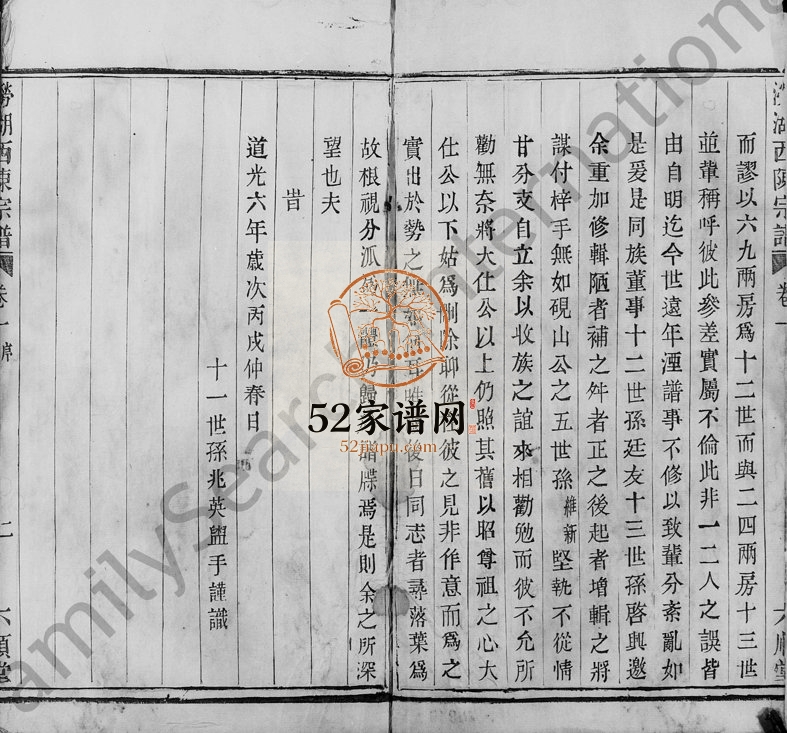 而謬以六九兩房爲十二世而與二四兩房十三世
並輩稱呼彼此參差實屬不倫此非一二人之誤皆
由自明迄今世遠年湮譜事不修以致輩分紊亂如
是爰是同族董事十二世孫廷友十三世孫啓興邀
余重加修輯陋者補之舛者正之後起者增輯之將
謀付梓手無如硯山公之五世孫維新堅執不從情
甘分支自立余以收族之誼來相勸勉而彼不允所
勸無奈將大仕公以上仍照其舊以昭尊祖之心大
仕公以下姑爲刪除聊從彼之見非作意而爲之
實出於勢之無後日同志者尋落葉爲
故根視分派歸牒焉是則余之所深
望也夫
旹
道光六年歲次丙戌仲春日
十一世孫兆英盥手謹識
湖西陳宗譜
卷一
序
二
六順堂
湖西陳宗譜
卷一
六順堂
52家谱网
52jiapu.com
FamilySearch International